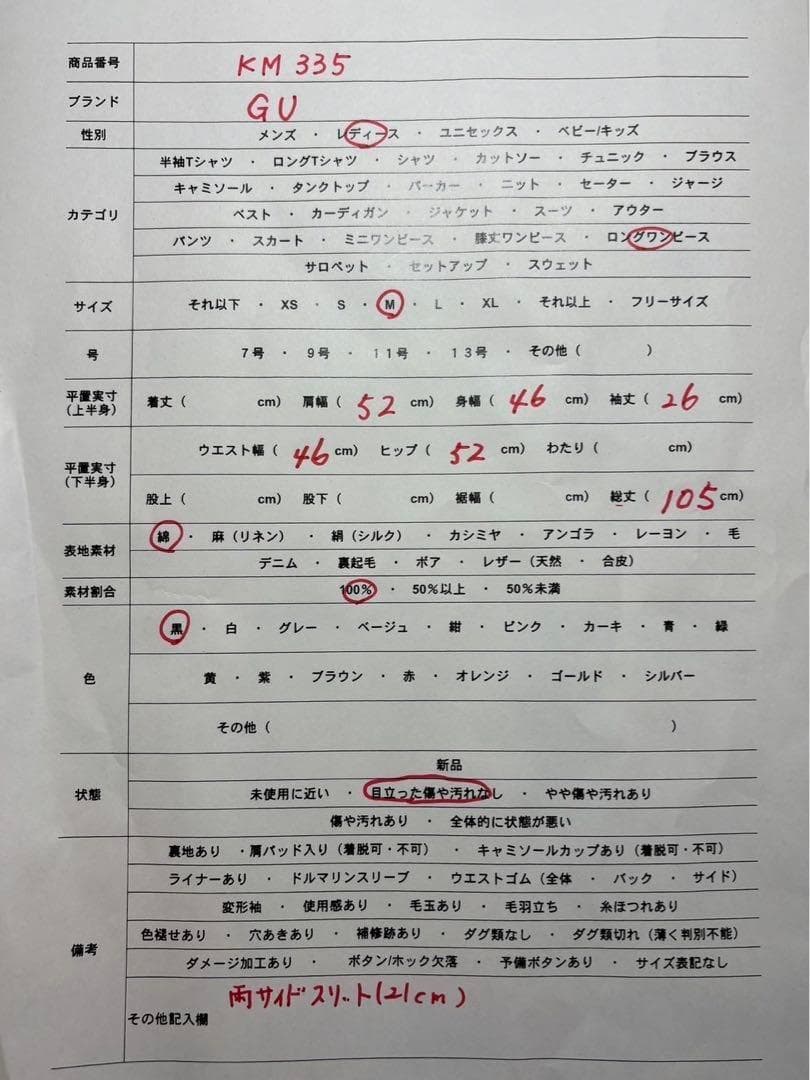 商品番号 KM 335
ブランド GU
性別 メンズ ・ レディース ・ ユニセックス ・ ベビー/キッズ
半袖Tシャツ ・ ロングTシャツ ・ シャツ ・ カットソー ・ チュニック ・ ブラウス
キャミソール ・ タンクトップ ・ パーカー ・ ニット ・ セーター ・ ジャージ
カテゴリ ベスト ・ カーディガン ・ ジャケット ・ スーツ ・ アウター
パンツ ・ スカート ・ ミニワンピース ・ 膝丈ワンピース ・ ロングワンピース
サロペット ・ セットアップ ・ スウェット
サイズ それ以下 ・ XS ・ S ・ M ・ L ・ XL ・ それ以上 ・ フリーサイズ
号 7号 ・ 9号 ・ 11号 ・ 13号 ・ その他 ( )
平置実寸
(上半身) 着丈 ( cm) 肩幅 ( 52 cm) 身幅 ( 46 cm) 袖丈 ( 26 cm)
ウエスト幅 ( 46 cm) ヒップ ( 52 cm) わたり ( cm)
平置実寸
(下半身)
股上 ( cm) 股下 ( cm) 裾幅 ( cm) 総丈 ( 105 cm)
綿 ・ 麻 (リネン) ・ 絹 (シルク) ・ カシミヤ ・ アンゴラ ・ レーヨン ・ 毛
表地素材
デニム ・ 裏起毛 ・ ボア ・ レザー (天然 ・ 合皮)
素材割合 100% ・ 50%以上 ・ 50%未満
黒 ・ 白 ・ グレー ・ ベージュ ・ 紺 ・ ピンク ・ カーキ ・ 青 ・ 緑
色 黄 ・ 紫 ・ ブラウン ・ 赤 ・ オレンジ ・ ゴールド ・ シルバー
その他 ( )
新品
状態 未使用に近い ・ 目立った傷や汚れなし ・ やや傷や汚れあり
傷や汚れあり ・ 全体的に状態が悪い
裏地あり ・肩パッド入り (着脱可・不可) ・ キャミソールカップあり (着脱可・不可)
ライナーあり ・ ドルマリンスリーブ ・ ウエストゴム (全体 ・ バック ・ サイド)
変形袖 ・ 使用感あり ・ 毛玉あり ・ 毛羽立ち ・ 糸ほつれあり
備考 色褪せあり ・ 穴あきあり ・ 補修跡あり ・ ダグ類なし ・ ダグ類切れ (薄く判別不能)
ダメージ加工あり ・ ボタン/ホック欠落 ・ 予備ボタンあり ・ サイズ表記なし
両サイドスリット(21cm)
その他記入欄